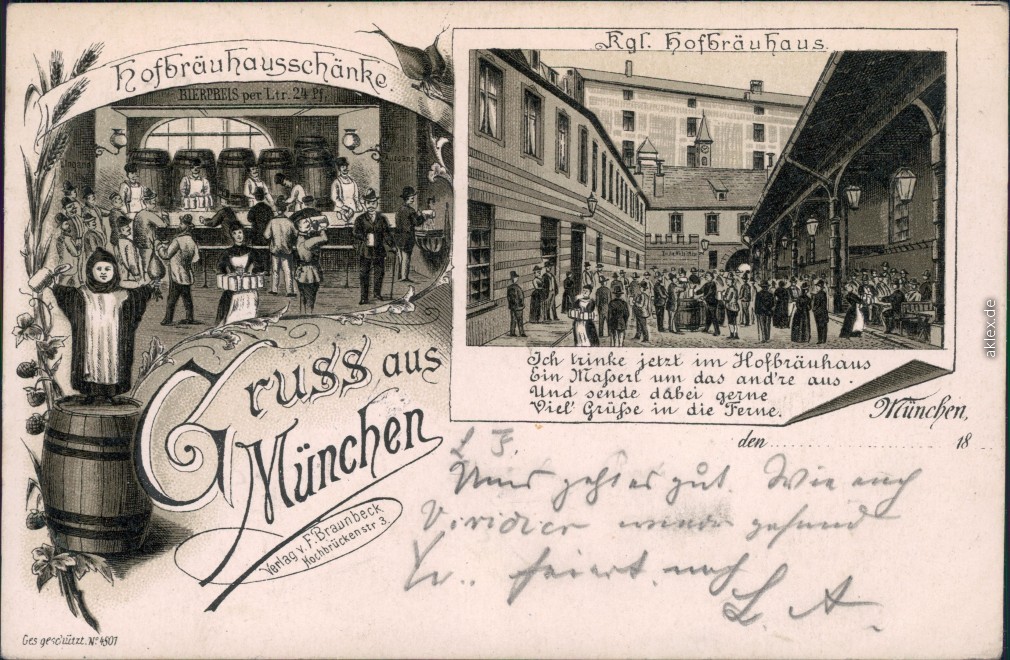 Hofbräuhausschänke.
BIERPREIS per Ltr. 24 Pf.
Kgl. Hofbräuhaus.
Ich trinke jetzt im Hofbräuhaus
Ein Maßerl um das and're aus.
Und sende dabei gerne
Viel' Grüße in die Ferne.
Gruss aus
München
München,
den 18
Verlag v. F. Braunbeck
Hochbrückenstr 3.
Uns geht es gut. Wie auch
wieder gesund
noch
L. A.
Ges geschützt. No 4807
aklex.de